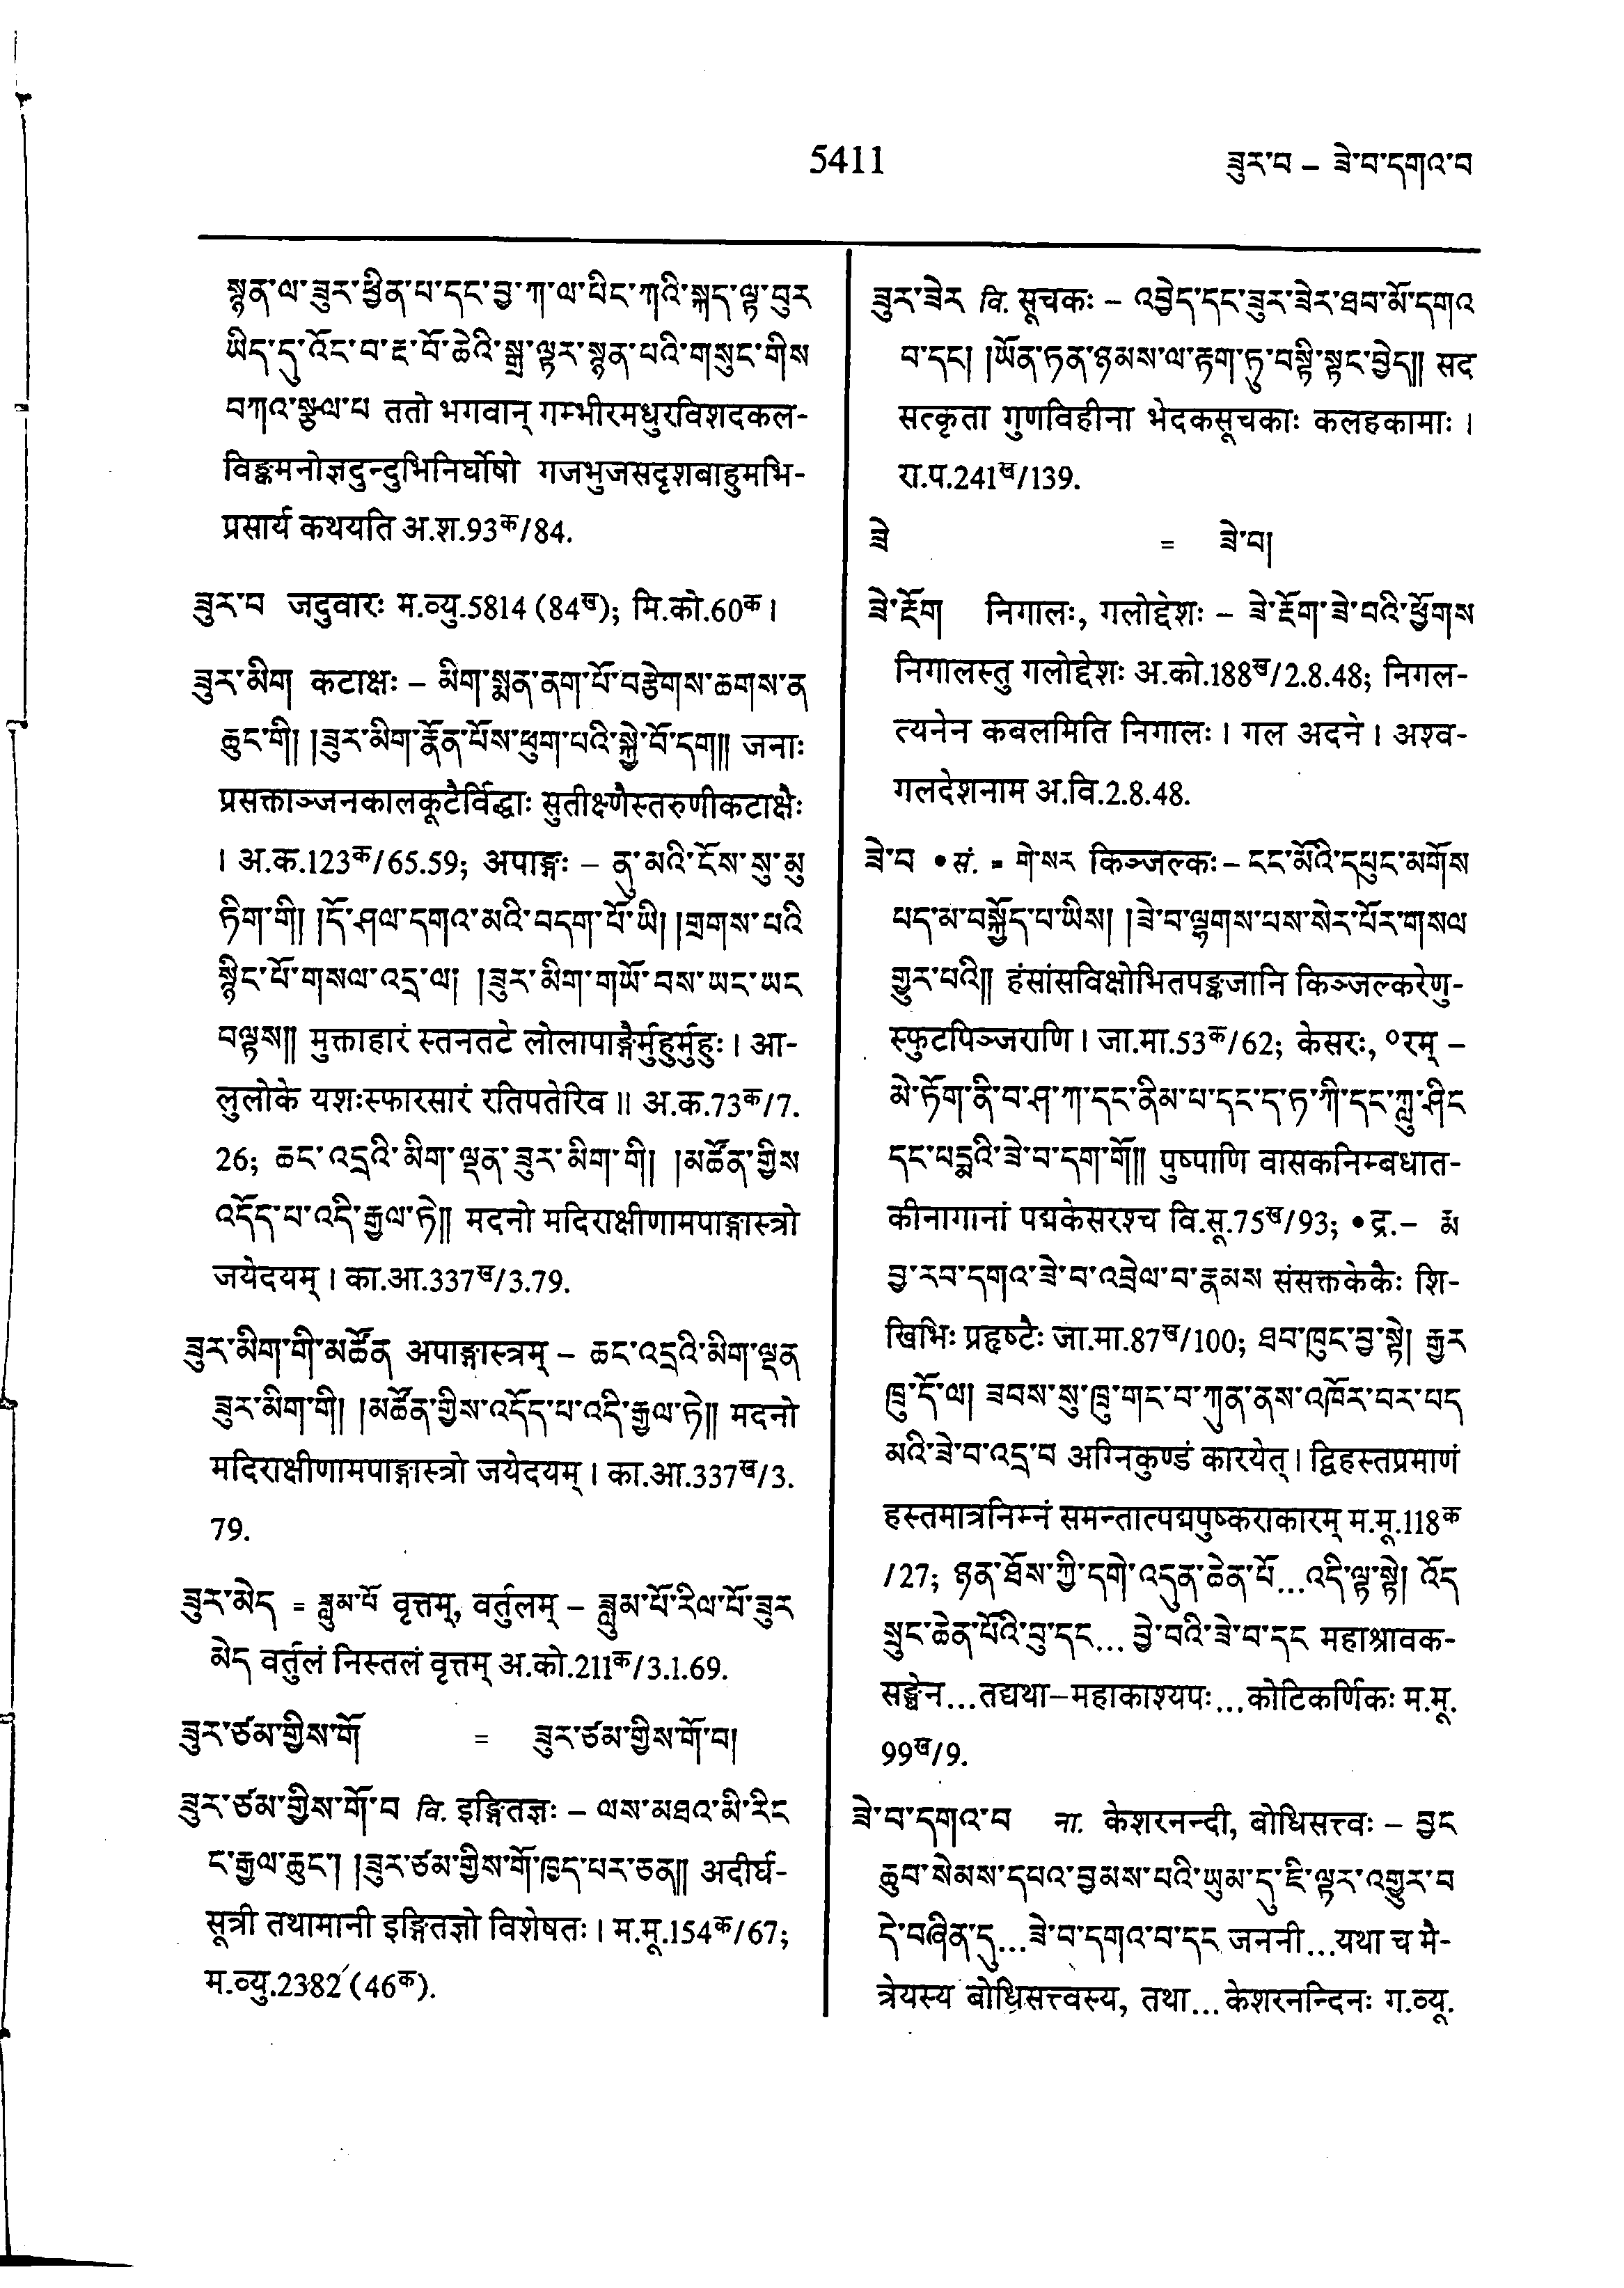 5411
ཟུར་བ – ཟེ་བ་དགའ་བ
སྙན་ལ་ཟུར་ཕྱིན་པ་དང་བྱ་ཀ་ལ་པིང་ཀའི་སྐད་ལྟ་བུར
ཡིད་དུ་འོང་བ་རྔ་བོ་ཆེའི་སྒྲ་ལྟར་སྙན་པའི་གསུང་གིས
བཀའ་སྩལ་པ ततो भगवान् गम्भीरमधुरविशदकल-
विङ्कमनोज्ञदुन्दुभिनिर्घोषो गजभुजसदृशबाहुमभि-
प्रसार्य कथयति अ.श.93क/84.
ཟུར་བ जदुवारः म.व्यु.5814 (84ख); मि.को.60क।
ཟུར་མིག कटाक्षः – མིག་སྨན་ནག་པོ་བརྩེགས་ཆགས་ན
ཆུང་གི། །ཟུར་མིག་རྣོན་པོས་ཕུག་པའི་སྐྱེ་བོ་དག།། जनाः
प्रसक्ताञ्जनकालकूटैर्विद्धाः सुतीक्ष्णैस्तरुणीकटाक्षैः
। अ.क.123क/65.59; अपाङ्गः – ནུ་མའི་ངོས་སུ་མུ
ཏིག་གི། །དོ་ཤལ་དགའ་མའི་བདག་པོ་ཡི། །གྲགས་པའི
སྙིང་པོ་གསལ་འདྲ་ལ། །ཟུར་མིག་གཡོ་བས་ཡང་ཡང
བལྟས།། मुक्ताहारं स्तनतटे लोलापाङ्गैर्मुहुर्मुहुः। आ-
लुलोके यशःस्फारसारं रतिपतेरिव॥ अ.क.73क/7.
26; ཆང་འདྲའི་མིག་ལྡན་ཟུར་མིག་གི། །མཚོན་གྱིས
འདོད་པ་འདི་རྒྱལ་ཏེ།། मदनो मदिराक्षीणामपाङ्गास्त्रो
जयेदयम्। का.आ.337ख/3.79.
ཟུར་མིག་གི་མཚོན अपाङ्गास्त्रम् – ཆང་འདྲའི་མིག་ལྡན
ཟུར་མིག་གི། །མཚོན་གྱིས་འདོད་པ་འདི་རྒྱལ་ཏེ།། मदनो
मदिराक्षीणामपाङ्गास्त्रो जयेदयम्। का.आ.337ख/3.
79.
ཟུར་མེད = ཟླུམ་པོ वृत्तम्, वर्तुलम् – ཟླུམ་པོ་རིལ་པོ་ཟུར
མེད वर्तुलं निस्तलं वृत्तम् अ.को.211क/3.1.69.
ཟུར་ཙམ་གྱིས་གོ = ཟུར་ཙམ་གྱིས་གོ་བ།
ཟུར་ཙམ་གྱིས་གོ་བ वि. इङ्गितज्ञः – ལས་མཐའ་མི་རིང
ང་རྒྱལ་ཆུང་། །ཟུར་ཙམ་གྱིས་གོ་ཁྱད་པར་ཅན།། अदीर्घ-
सूत्री तथामानी इङ्गितज्ञो विशेषतः। म.मू.154क/67;
म.व्यु.2382 (46क).
ཟུར་ཟེར वि. सूचकः – འབྱེད་དང་ཟུར་ཟེར་ཐབ་མོ་དགའ
བ་དང། །ཡོན་ཏན་ཉམས་ལ་རྟག་ཏུ་བསྟི་སྟང་བྱེད།། सद
सत्कृता गुणविहीना भेदकसूचकाः कलहकामाः।
रा.प.241ख/139.
ཟེ = ཟེ་བ།
ཟེ་རྔོག निगालः, गलोद्देशः – ཟེ་རྔོག་ཟེ་བའི་ཕྱོགས
निगालस्तु गलोद्देशः अ.को.188ख/2.8.48; निगल-
त्यनेन कबलमिति निगालः। गल अदने। अश्व-
गलदेशनाम अ.वि.2.8.48.
ཟེ་བ • सं. = གེ་སར किञ्जल्कः – ངང་མོའི་དཔུང་མགོས
པད་མ་བསྐྱོད་པ་ཡིས། །ཟེ་བ་ལྷགས་པས་སེར་པོར་གསལ
གྱུར་པའི།། हंसांसविक्षोभितपङ्कजानि किञ्जल्करेणु-
स्फुटपिञ्जराणि। जा.मा.53क/62; केसरः, ०रम् –
མེ་ཏོག་ནི་བ་ཤ་ཀ་དང་ནིམ་པ་དང་ད་ཏ་ཀི་དང་ཀླུ་ཤིང
དང་པདྨའི་ཟེ་བ་དག་གོ།། पुष्पाणि वासकनिम्बधात-
कीनागानां पद्मकेसरश्च वि.सू.75ख/93; • द्र.– རྨ
བྱ་རབ་དགའ་ཟེ་བ་འབྲེལ་བ་རྣམས संसक्तकेकैः शि-
खिभिः प्रहृष्टैः जा.मा.87ख/100; ཐབ་ཁུང་བྱ་སྟེ། རྒྱར
ཁྲུ་དོ་ལ། ཟབས་སུ་ཁྲུ་གང་བ་ཀུན་ནས་འཁོར་བར་པད
མའི་ཟེ་བ་འདྲ་བ अग्निकुण्डं कारयेत्। द्विहस्तप्रमाणं
हस्तमात्रनिम्नं समन्तात्पद्मपुष्कराकारम् म.मू.118क
/27; ཉན་ཐོས་ཀྱི་དགེ་འདུན་ཆེན་པོ...འདི་ལྟ་སྟེ། འོད
སྲུང་ཆེན་པོའི་བུ་དང... བྱེ་བའི་ཟེ་བ་དང महाश्रावक-
सङ्घेन...तद्यथा–महाकाश्यपः...कोटिकर्णिकः म.मू.
99ख/9.
ཟེ་བ་དགའ་བ ना. केशरनन्दी, बोधिसत्त्वः – བྱང
ཆུབ་སེམས་དཔའ་བྱམས་པའི་ཡུམ་དུ་ཇི་ལྟར་འགྱུར་བ
དེ་བཞིན་དུ...ཟེ་བ་དགའ་བ་དང जननी...यथा च मै-
त्रेयस्य बोधिसत्त्वस्य, तथा... केशरनन्दिनः ग.व्यू.